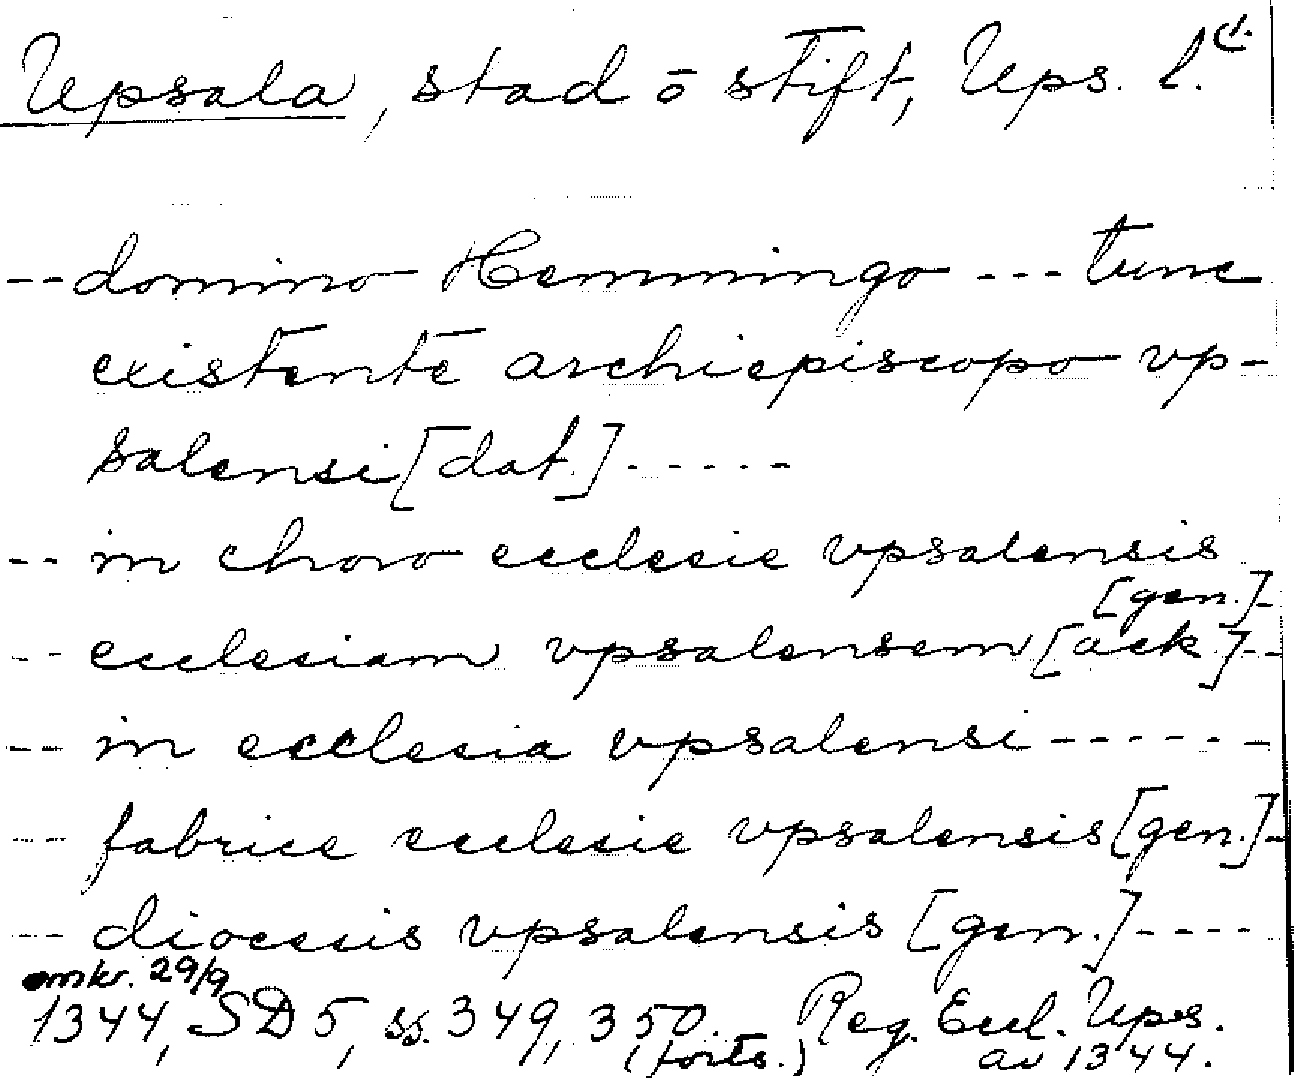 Upsala, stad o stift, Ups. l.
-- domino Hemmingo --- tunc
existente archiepiscopo vp-
salensi [dat.] -----
-- in choro ecclesie vpsalensis
[gen.]-
-- ecclesiam vpsalensem [ack.]--
-- in ecclesia vpsalensi ------
-- fabrice ecclesie vpsalensis [gen.]-
-- diocesis vpsalensis [gen.]----
omkr. 29/9
1344, SD 5, ss. 349, 350. Reg. Eccl. Ups.
(forts.) av 1344.